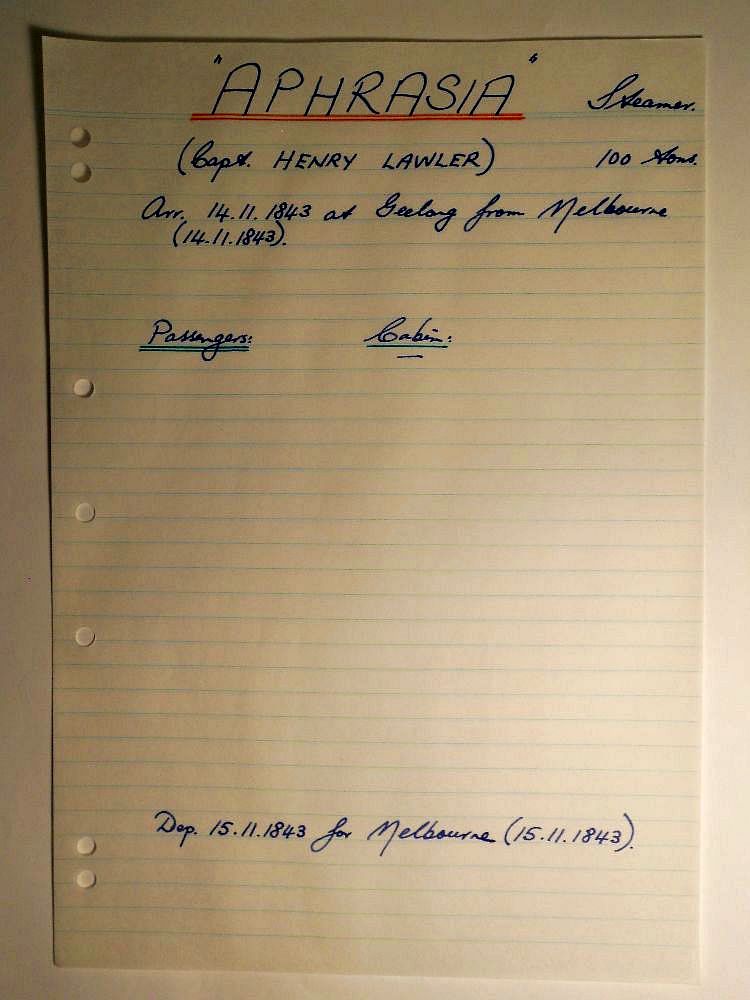 "APHRASIA" Steamer.
(Capt. HENRY LAWLER) 100 tons.
Arr. 14.11.1843 at Geelong from Melbourne
(14.11.1843).
Passengers: Cabin:
—
Dep. 15.11.1843 for Melbourne (15.11.1843).